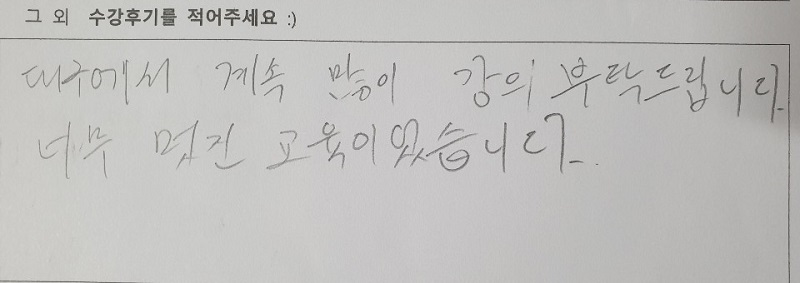 그 외 수강후기를 적어주세요 :)
대구에서 계속 많이 강의 부탁드립니다.
너무 멋진 교육이었습니다.